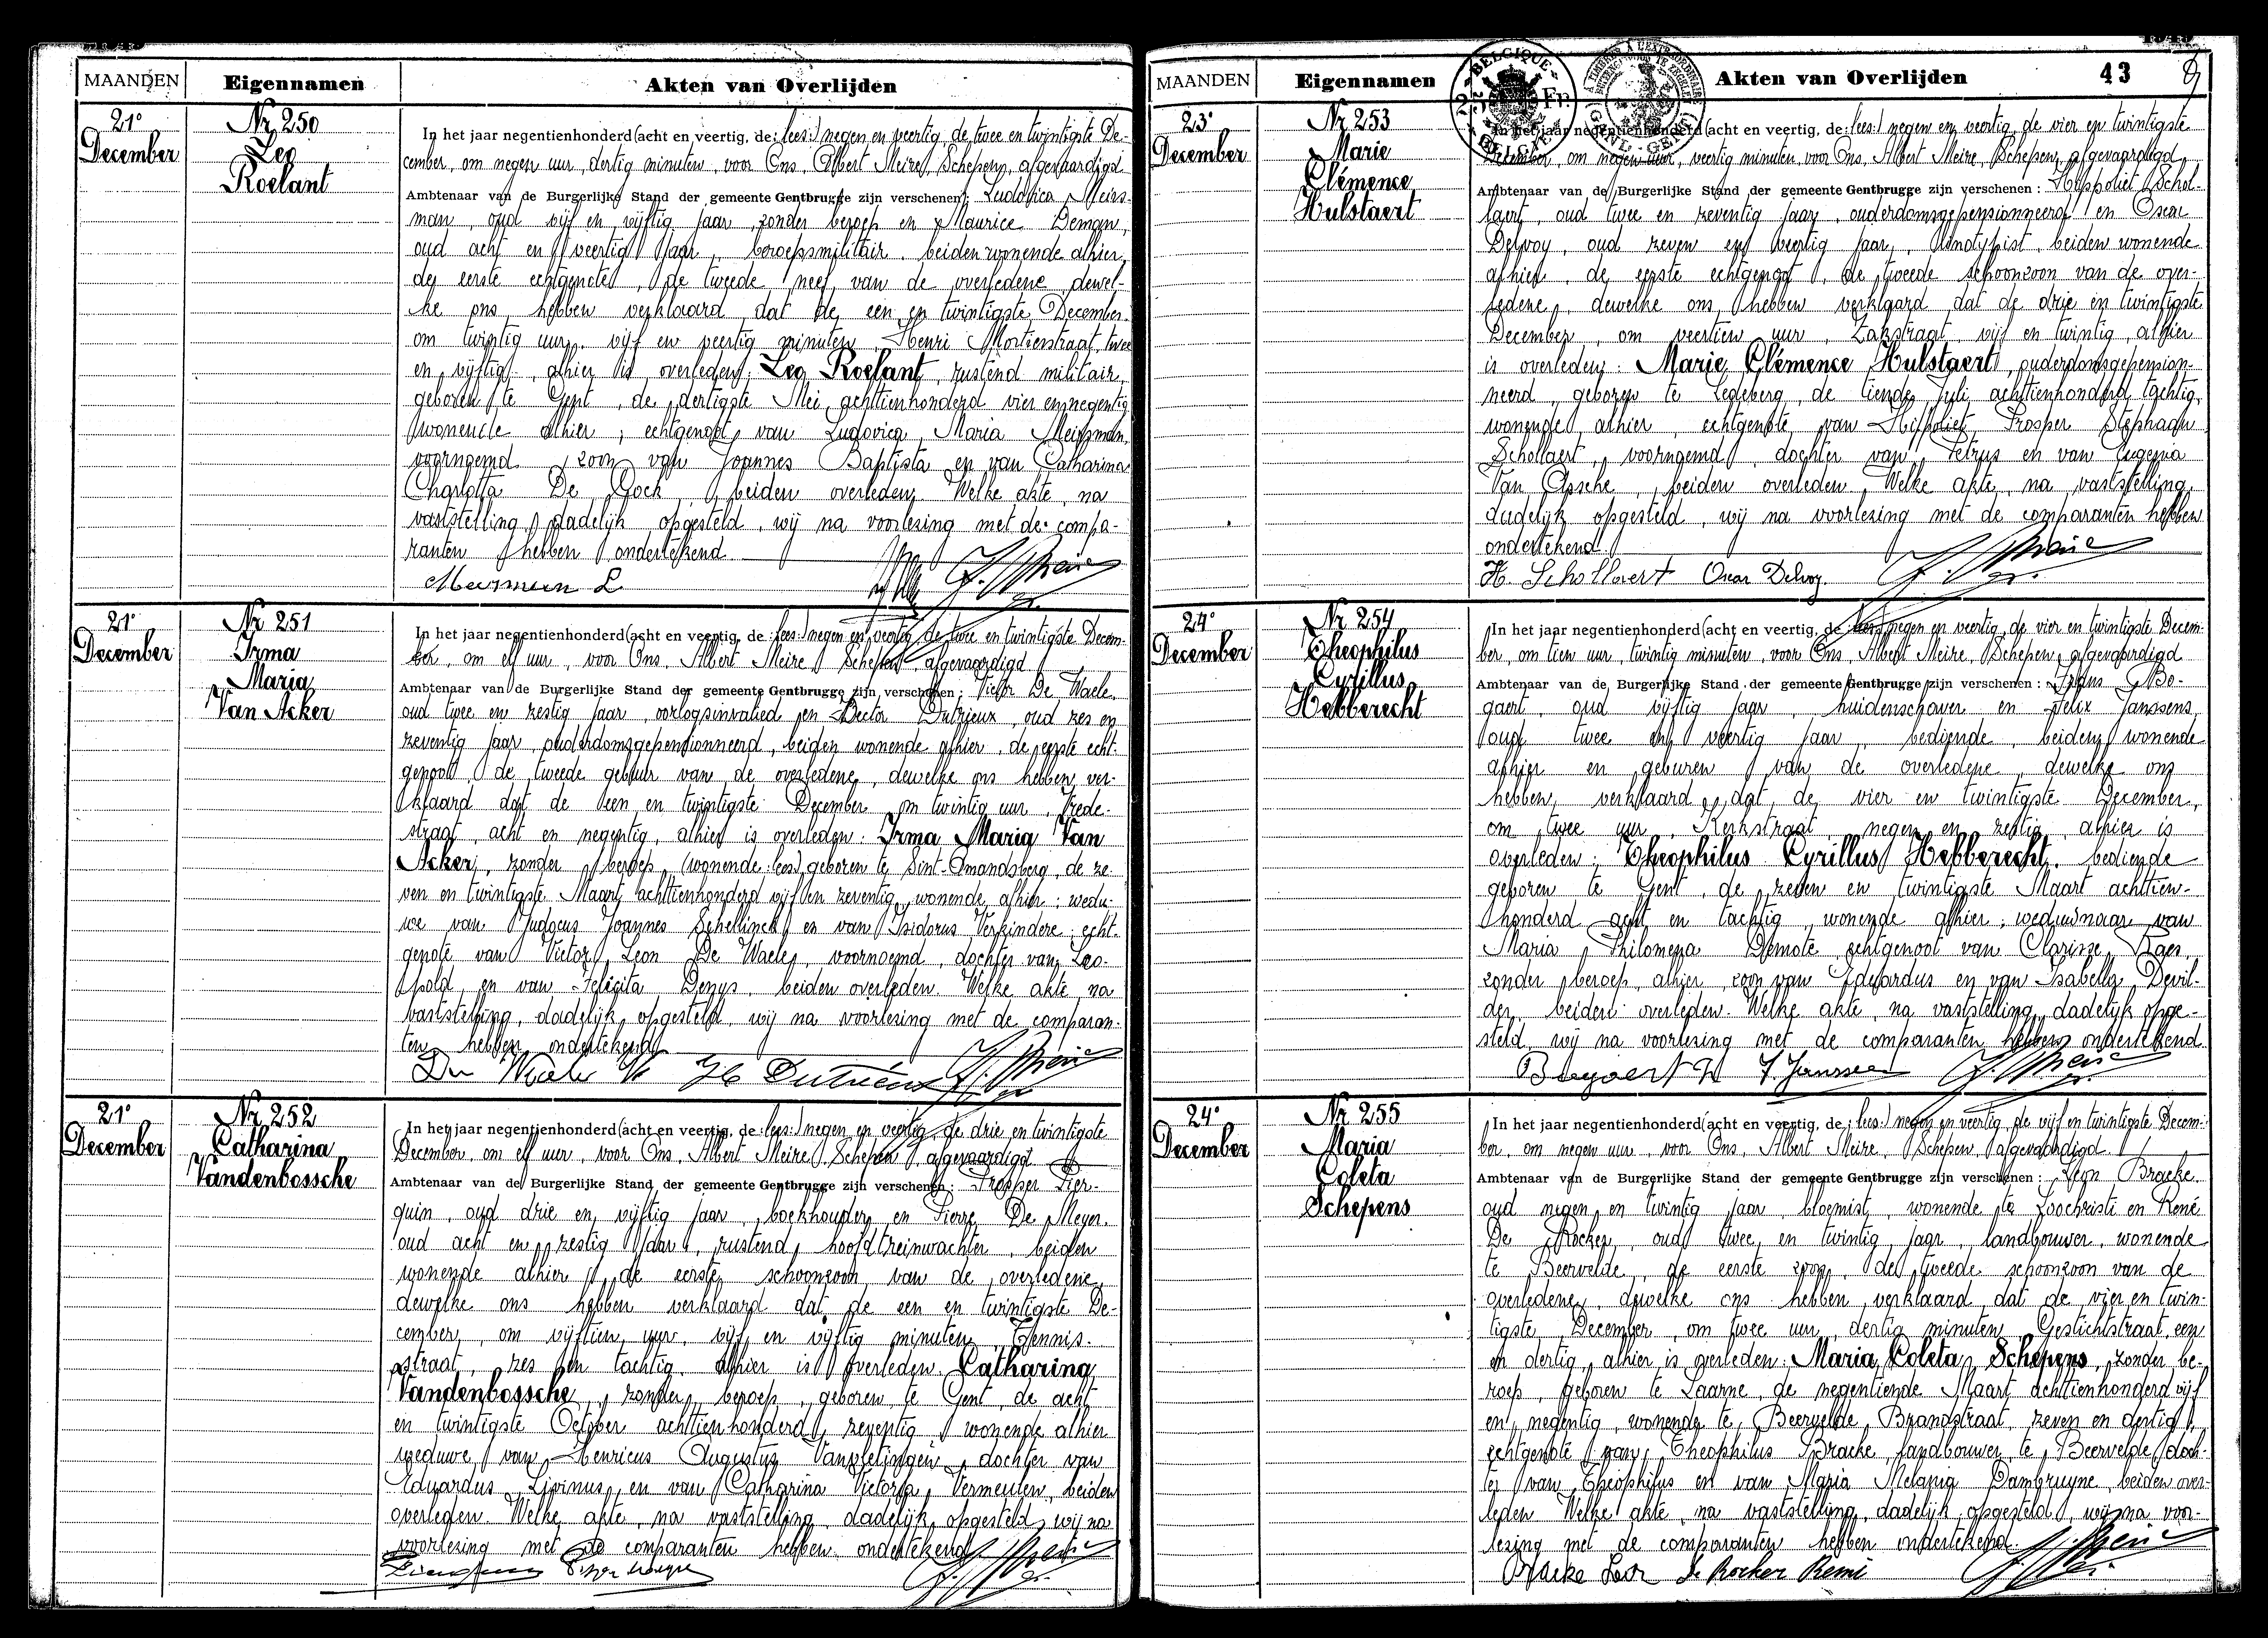 MAANDEN
Eigennamen
Akten van Overlijden
21°
December
Nr 250
Leo
Roelant
In het jaar negentienhonderd (acht en veertig, de: lees:) negen en veertig, de twee en twintigste De-
cember, om negen uur, dertig minuten, voor Ons, Albert Meire, Schepen, afgevaardigd
Ambtenaar van de Burgerlijke Stand der gemeente Gentbrugge zijn verschenen: Ludovica Meirs-
man, oud vijf en vijftig jaar, zonder beroep en Maurice Deman,
oud acht en veertig jaar, beroepsmilitair, beiden wonende alhier,
de eerste echtgenote, de tweede neef van de overledene, dewel-
ke ons hebben verklaard dat de een en twintigste December
om twintig uur, vijf en veertig minuten, Henri Mortierstraat, twee
en vijftig, alhier is overleden: Leo Roelant, rustend militair,
geboren te Gent, de dertigste Mei achttienhonderd vier en negentig
wonende alhier; echtgenoot van Ludovica Maria Meirsman,
voornoemd, zoon van Joannes Baptista en van Catharina
Charlotta De Cock, beiden overleden. Welke akte, na
vaststelling, dadelijk opgesteld, wij na voorlezing met de compa-
ranten hebben ondertekend.
Meersman L
21°
December
Nr 251
Irma
Maria
Van Acker
In het jaar negentienhonderd (acht en veertig, de: lees:) negen en veertig, de twee en twintigste Decem-
ber, om elf uur, voor Ons, Albert Meire, Schepen, afgevaardigd
Ambtenaar van de Burgerlijke Stand der gemeente Gentbrugge zijn verschenen: Victor De Waele,
oud twee en zestig jaar, oorlogsinvalied en Hector Dutrieux, oud zes en
zeventig jaar, ouderdomsgepensionneerd, beiden wonende alhier, de eerste echt-
genoot, de tweede gebuur van de overledene, dewelke ons hebben ver-
klaard dat de een en twintigste December om twintig uur, Vrede-
straat, acht en negentig, alhier is overleden: Irma Maria Van
Acker, zonder beroep, (wonende: lees:) geboren te Sint-Amandsberg, de ze-
ven en twintigste Maart achttienhonderd vijf en zeventig, wonende alhier; wedu-
we van Judocus Joannes Schellinck en van Isidorus Verkindere; echt-
genote van Victor Leon De Waele, voornoemd, dochter van Leo-
pold en van Felicita Denys, beiden overleden. Welke akte, na
vaststelling, dadelijk opgesteld, wij na voorlezing met de comparan-
ten hebben ondertekend
De Waele V H Dutrieux
21°
December
Nr 252
Catharina
Vandenbossche
In het jaar negentienhonderd (acht en veertig, de: lees:) negen en veertig, de drie en twintigste
December, om elf uur, voor Ons, Albert Meire, Schepen, afgevaardigd
Ambtenaar van de Burgerlijke Stand der gemeente Gentbrugge zijn verschenen: Prosper Pier-
quin, oud drie en vijftig jaar, boekhouder en Pierre De Meyer,
oud acht en zestig jaar, rustend hoofdtreinwachter, beiden
wonende alhier, de eerste schoonzoon van de overledene,
dewelke ons hebben verklaard dat de een en twintigste De-
cember, om vijftien uur, vijf en vijftig minuten, Tennis-
straat, zes en tachtig, alhier is overleden: Catharina
Vandenbossche, zonder beroep, geboren te Gent, de acht
en twintigste October achttienhonderd zeventig, wonende alhier
weduwe van Henricus Augustus Vanpeteghem, dochter van
Eduardus Livinus en van Catharina Victoria Vermeulen, beiden
overleden. Welke akte, na vaststelling, dadelijk opgesteld, wij na
voorlezing met de comparanten hebben ondertekend
MAANDEN
Eigennamen
Akten van Overlijden
43
BELGIQUE
25 Fr.
BELGIE
23°
December
Nr 253
Marie
Clémence
Hulstaert
In het jaar negentienhonderd (acht en veertig, de: lees:) negen en veertig, de vier en twintigste
December, om negen uur, veertig minuten, voor Ons, Albert Meire, Schepen, afgevaardigd
Ambtenaar van de Burgerlijke Stand der gemeente Gentbrugge zijn verschenen: Hippoliet Schol-
laert, oud twee en zeventig jaar, ouderdomsgepensionneerd en Oscar
Delvoy, oud zeven en veertig jaar, linotypist, beiden wonende
alhier, de eerste echtgenoot, de tweede schoonzoon van de over-
ledene, dewelke ons hebben verklaard dat de drie en twintigste
December, om veertien uur, Zakstraat, vijf en twintig, alhier
is overleden: Marie Clémence Hulstaert, ouderdomsgepension-
neerd, geboren te Ledeberg, de tiende Juli achttienhonderd tachtig,
wonende alhier, echtgenote van Hippoliet Prosper Stephaan
Schollaert, voornoemd, dochter van Petrus en van Eugenia
Van Assche, beiden overleden. Welke akte, na vaststelling,
dadelijk opgesteld, wij na voorlezing met de comparanten hebben
ondertekend.
H. Schollaert Oscar Delvoy.
24°
December
Nr 254
Theophilus
Cyrillus
Hebberecht
In het jaar negentienhonderd (acht en veertig, de: lees:) negen en veertig, de vier en twintigste Decem-
ber, om tien uur, twintig minuten, voor Ons, Albert Meire, Schepen, afgevaardigd
Ambtenaar van de Burgerlijke Stand der gemeente Gentbrugge zijn verschenen: Frans Bo-
gaert, oud vijftig jaar, huidenschaver en Felix Janssens,
oud twee en veertig jaar, bediende, beiden wonende
alhier en geburen van de overledene, dewelke ons
hebben verklaard dat de vier en twintigste December,
om twee uur, Kerkstraat, negen en zestig, alhier is
overleden: Theophilus Cyrillus Hebberecht, bediende
geboren te Gent, de zeven en twintigste Maart achttien-
honderd acht en tachtig, wonende alhier; weduwnaar van
Maria Philomena Demote, echtgenoot van Clarisse Raes,
zonder beroep, alhier, zoon van Eduardus en van Isabella Devil-
der, beiden overleden. Welke akte, na vaststelling, dadelijk opge-
steld, wij na voorlezing met de comparanten hebben ondertekend.
Bogaert F. Janssens
24°
December
Nr 255
Maria
Coleta
Schepens
In het jaar negentienhonderd (acht en veertig, de: lees:) negen en veertig, de vijf en twintigste Decem-
ber, om negen uur, voor Ons, Albert Meire, Schepen, afgevaardigd
Ambtenaar van de Burgerlijke Stand der gemeente Gentbrugge zijn verschenen: Leon Bracke,
oud negen en twintig jaar, bloemist, wonende te Loochristi en René
De Rocker, oud twee en twintig jaar, landbouwer, wonende
te Beervelde, de eerste zoon, de tweede schoonzoon van de
overledene, dewelke ons hebben verklaard dat de vier en twin-
tigste December, om twee uur, dertig minuten, Gestichtstraat, een
en dertig, alhier is overleden: Maria Coleta Schepens, zonder be-
roep, geboren te Laarne, de negentiende Maart achttienhonderd vijf
en negentig, wonende te Beervelde, Brandstraat, zeven en dertig,
echtgenote van Theophilus Bracke, landbouwer, te Beervelde, doch-
ter van Theophilus en van Maria Melania Dambruyne, beiden over-
leden. Welke akte, na vaststelling, dadelijk opgesteld, wij na voor-
lezing met de comparanten hebben ondertekend.
Bracke Leon De Rocker Remi